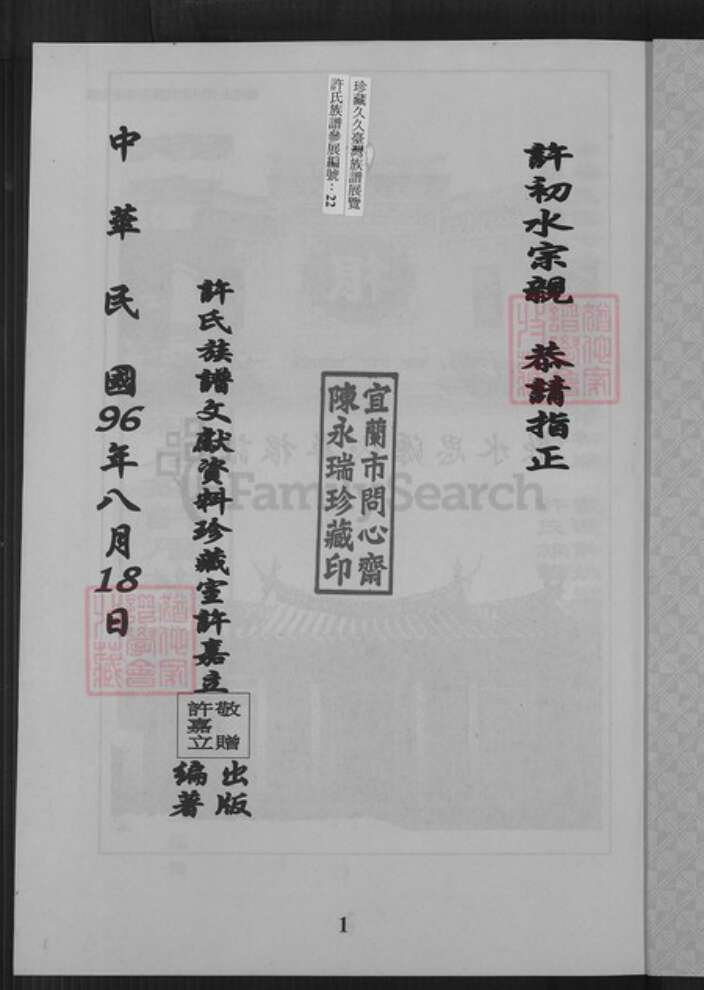 許初水宗親 恭請指正
珍藏久久臺灣族譜展覽
許氏族譜參展編號：22
宜蘭市問心齋
陳永瑞珍藏印
許氏族譜文獻資料珍藏室許嘉立
敬贈
許嘉立
出版
編著
中華民國96年八月18日
FamilySearch
1